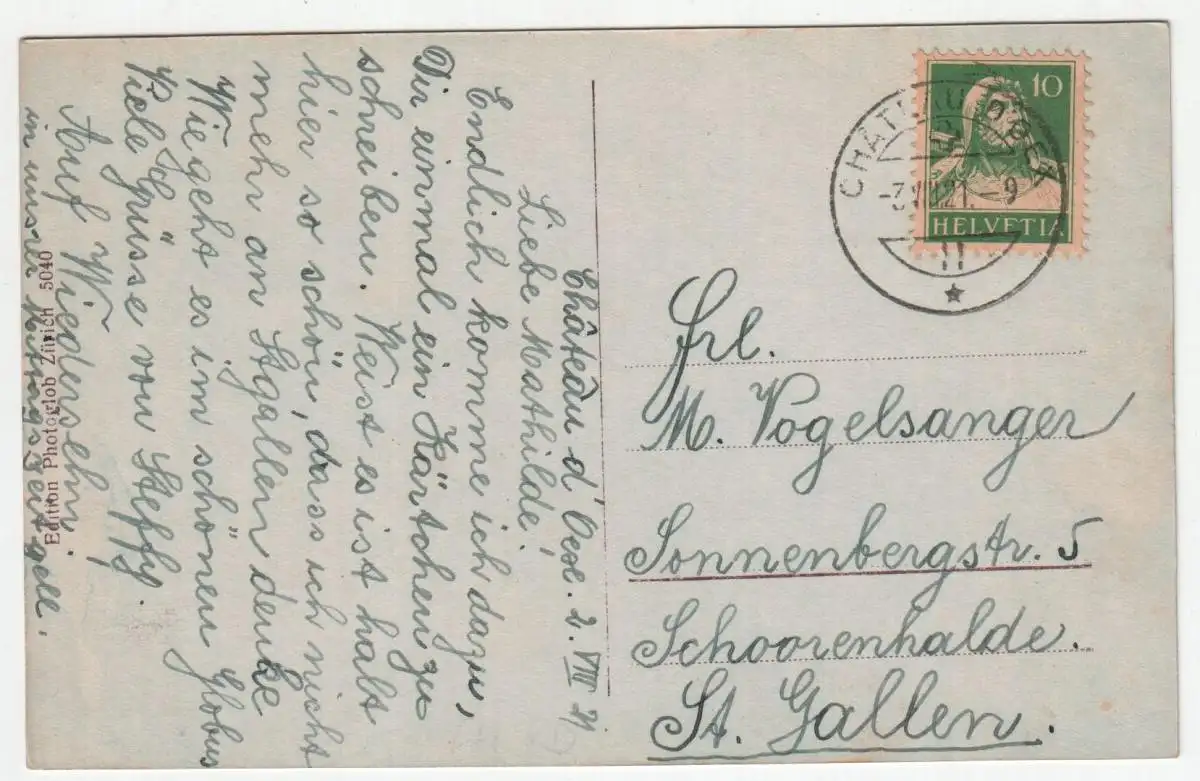 Château d'Oex. 2. VIII 21
Liebe Mathilde!
Endlich komme ich dazu,
Dir einmal ein Kärtchen zu
schreiben. Weist es ist halt
hier so schön, dass ich nicht
mehr an St.gallen denke
Wie geht es im schönen Globus
Viele Grüsse von Steffy.
Auf Wiedersehn.
in unsrer gell.
Edition Photoglob Zürich 5040
10
HELVETIA
CHÂTEAU D'OEX
-3.VIII.21.-9
Frl.
M. Vogelsanger
Sonnenbergstr. 5
Schoorenhalde.
St. Gallen.